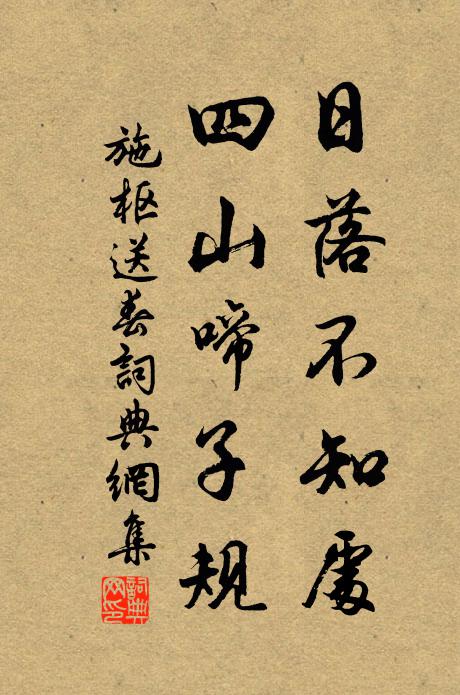 日落不知處
四山啼子規
施枢送春詞典網集
詞典网印